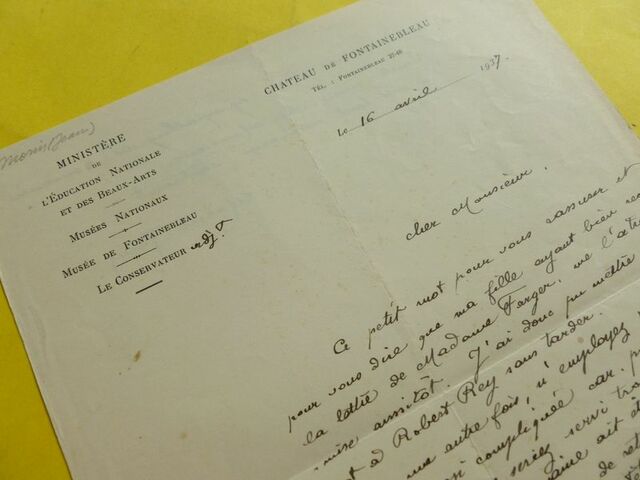 CHATEAU DE FONTAINEBLEAU
TÉL. : FONTAINEBLEAU 27-40
Le 16 avril 1937.
Morris (Jean)
MINISTÈRE
DE
L'ÉDUCATION NATIONALE
ET DES BEAUX-ARTS
MUSÉES NATIONAUX
MUSÉE DE FONTAINEBLEAU
LE CONSERVATEUR adjt
cher Monsieur,
Ce petit mot pour vous rassurer et
pour vous dire que ma fille ayant bien
la lettre de Madame Farger, me l'a
mise aussitôt. J'ai donc pu mettre
à Robert Rey sans tarder.
une autre fois, n'employez
compliquée car
seriez servi
ait
de